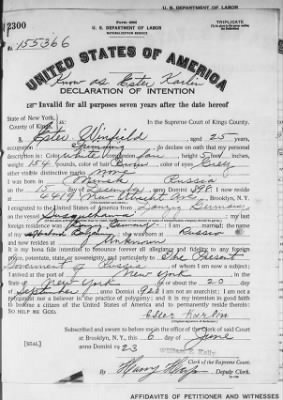 U. S. DEPARTMENT OF LABOR
2300
U. S. DEPARTMENT OF LABOR
NATURALIZATION SERVICE
TRIPLICATE
No. 155366
UNITED STATES OF AMERICA
Know as Ester Karlin
DECLARATION OF INTENTION
Invalid for all purposes seven years after the date hereof
State of New York,
County of Kings,
In the Supreme Court of Kings County.
I, Ester Winfield aged 25 years,
occupation do declare on oath that my personal
description is: Color white feet
color of hair Brown color of eyes Grey
other visible distinctive marks none
I was born in Minsk Russia
on the 15 day of December anno Domini 1898 I now reside
at Ave, Brooklyn, N. Y.
I emigrated to the United States of America from
on the vessel Susquehanna my last
foreign residence was Germany
she was born in Russia
and now resides at Unknown
It is my bona fide intention to renounce forever all allegiance and fidelity to any foreign
prince, potentate, state or sovereignty, and particularly to The Present
Government of Russia of whom I am now a subject;
I arrived at the port of New York in the
State of New York on or about the 20 day
of September anno Domini I am not an anarchist; I am not a
polygamist nor a believer in the practice of polygamy; and it is my intention in good faith
to become a citizen of the United States of America and to permanently reside therein:
SO HELP ME GOD.
Ester Karlin
Subscribed and sworn to before me in the office of the Clerk of said Court
at Brooklyn, N. Y., this 6 day of June
anno Domini 1923
[SEAL]
William E. Kelly
Clerk of the Supreme Court.
By Deputy Clerk.
AFFIDAVITS OF PETITIONER AND WITNESSES